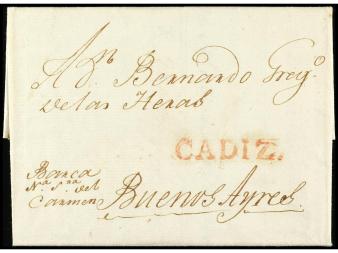 A Dn Bernardo Greg.o
de las Heras
CADIZ.
Barca
N.a S.ra del
Carmen
Buenos Ayres.